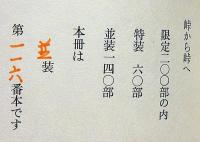 峠から峠へ
限定二〇〇部の内
特装　六〇部
並装一四〇部
本冊は
並装
第一一六番本です